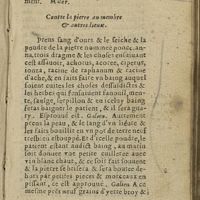 ment. Mder.
Contre la pierre au membre
& autres lieux.
Prens sang d'ours & le seiche & la
poudre de la pierre nommée ponce, an-
tragme & les choses ensuiuant
est assauoir, achorus, acorée, ciperus,
racine de raphanum & racine
d'ache, & en faits faire vn baing auquel
soient cuites les choses dessusdites, &
les herbes qui s'ensuiuent fanoul, mente,
saulge, serpillon & en iceluy baing
feras baigner le patient, & il sera guary.
Esprouué est. Galien. Autrement
prens la peau, & le sang d'vn lieure &
les faits bouillir en vn pot de terre neuf
estouppé. Et d'icelle poudre, le
patient estant audict baing, au matin
soit donné vne petite cuillerée auec
vin blanc chaut, & ce soit fait souuent
& la pierre se brisera & sera boutée de-
hors par petites pieces & morceaux en
pissant, ce est approuué. Galien A ce
mesme prens once d'yette broy &